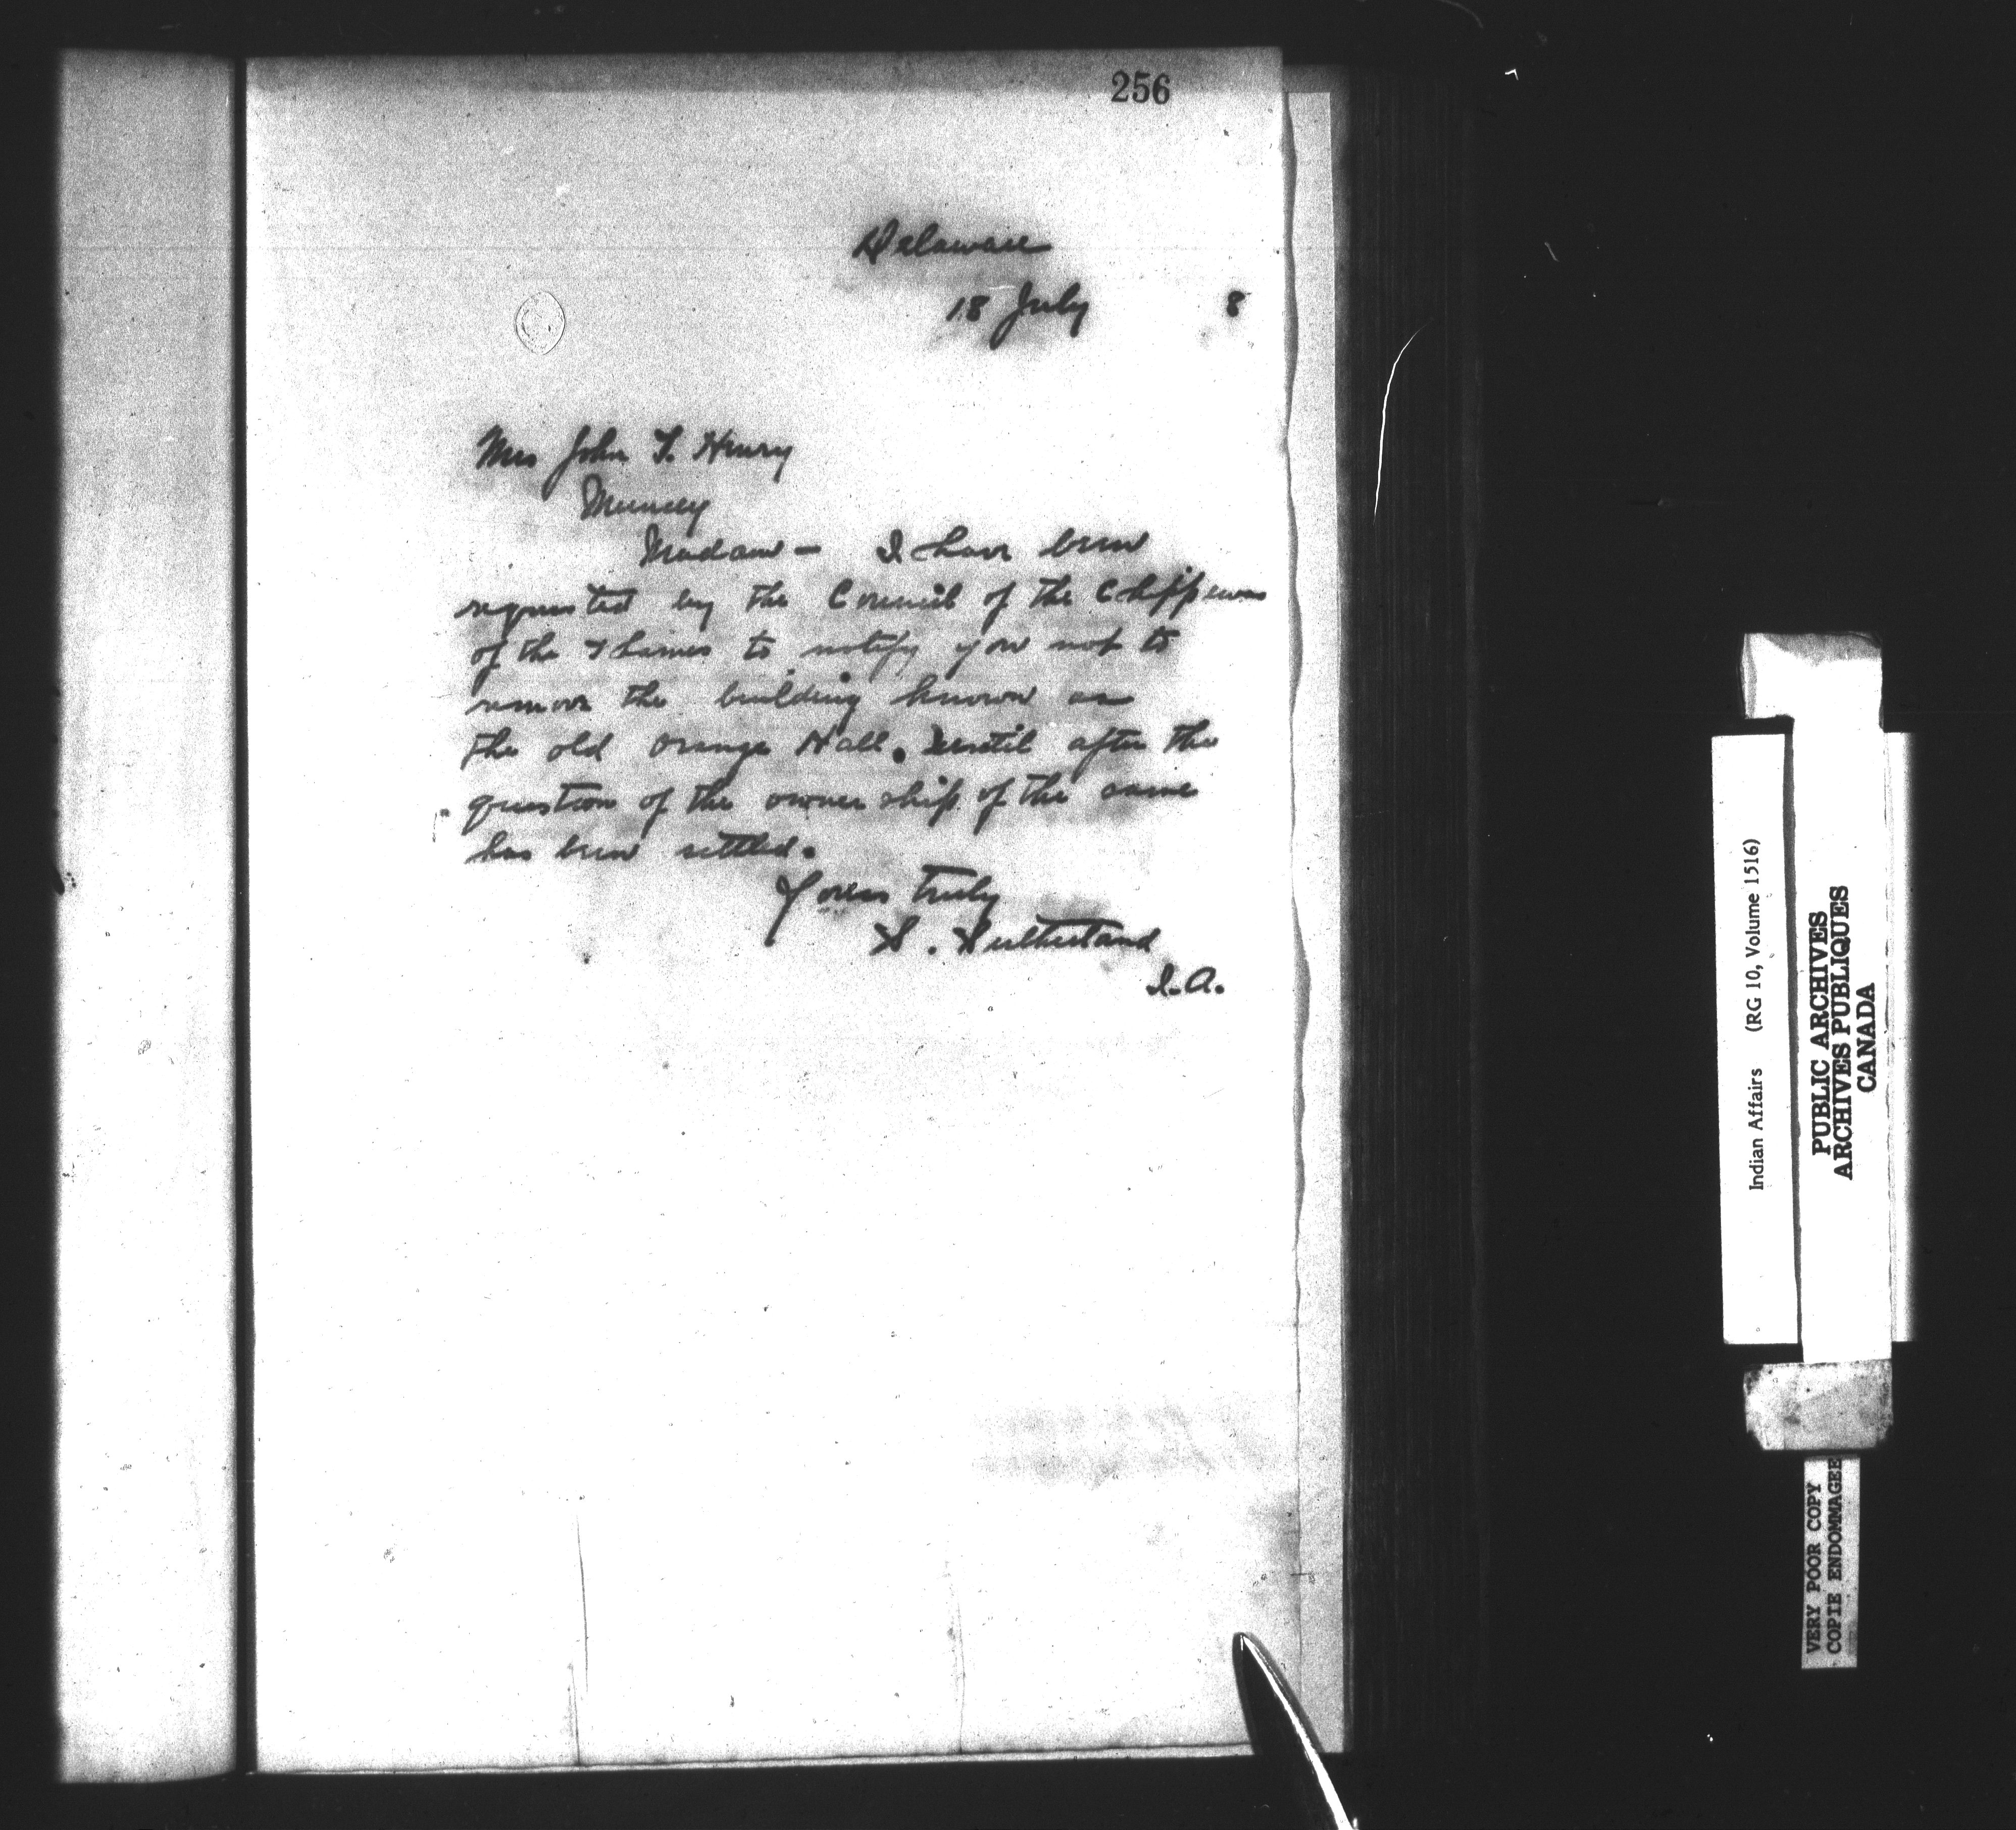 256
Delaware
18 July 8
Mrs John F. Henry
Muncey
Madam - I have been
requested by the Council of the Chippewas
of the Thames to notify you not to
remove the building known as
the old Orange Hall. Until after the
question of the owner ship of the same
has been settled.
Yours truly
S. Sutherland
I.A.
Indian Affairs (RG 10, Volume 1516)
PUBLIC ARCHIVES
ARCHIVES PUBLIQUES
CANADA
VERY POOR COPY
COPIE ENDOMMAGEE